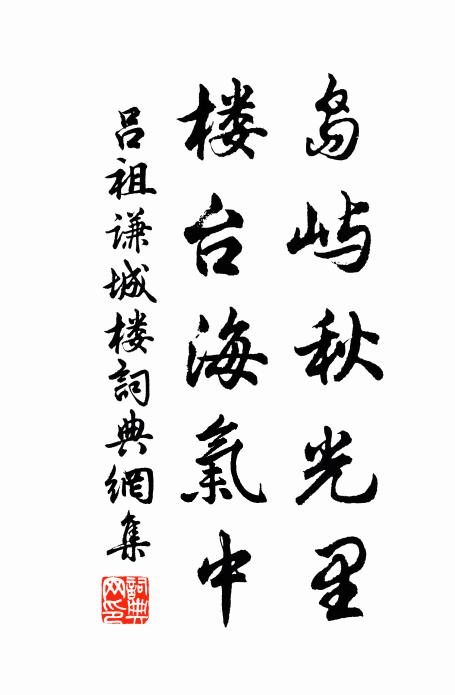 岛屿秋光里
楼台海氣中
吕祖谦城楼詞典網集
詞典网印